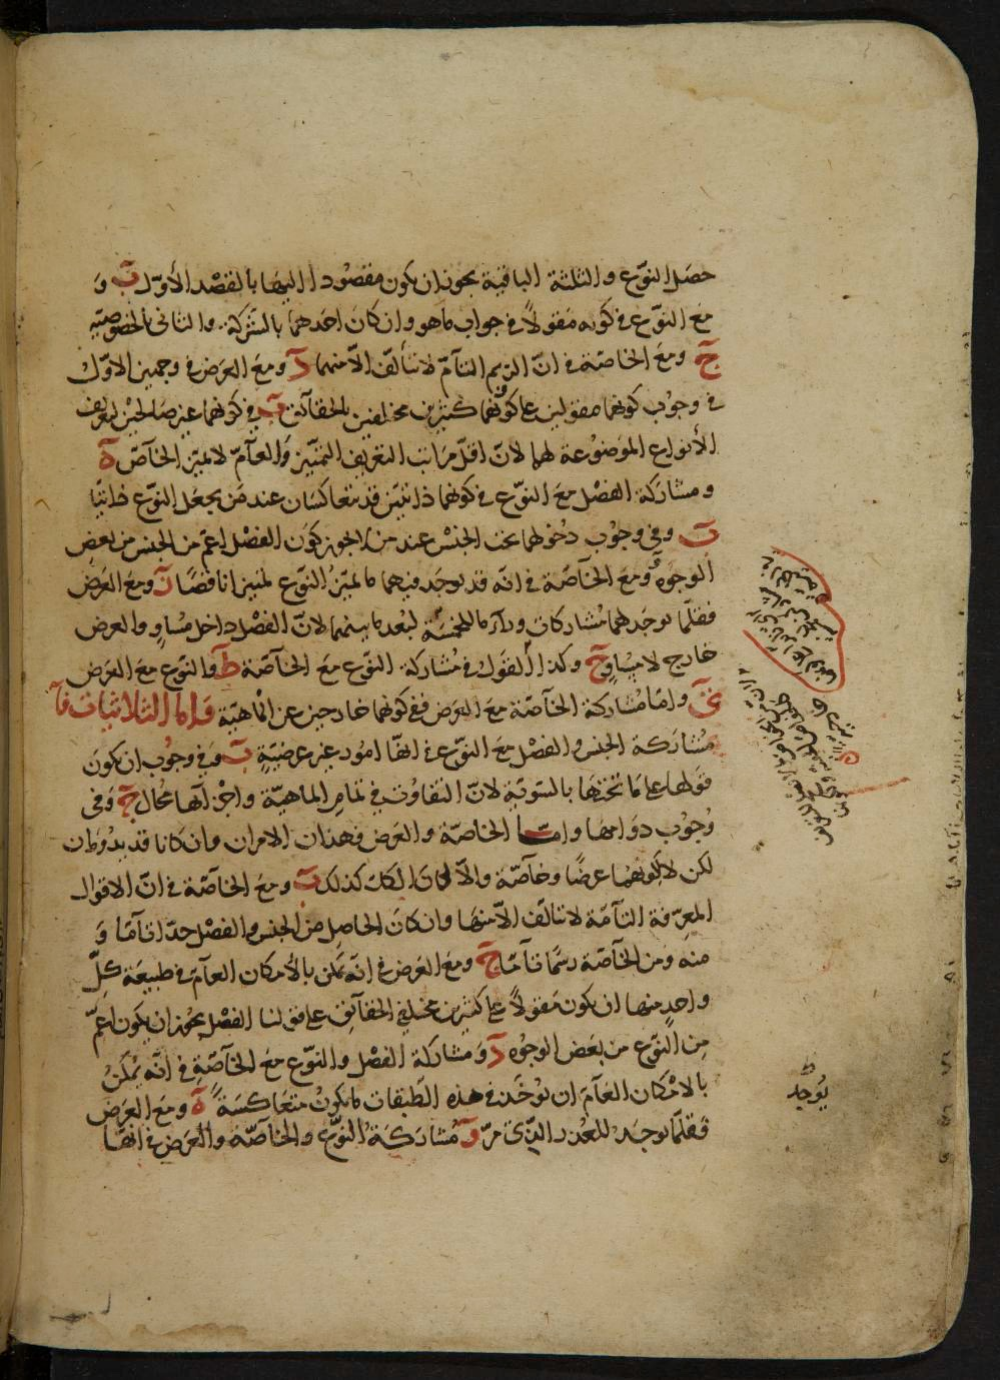 حصل النوع والثلثة الباقية يجوز ان يكون مقصودا اليها بالقصد الأول ب و
مع النوع في كونه مقولاً في جواب ما هو وان كان احدهما بالشركة والثانى بالخصوصية
ج ومع الخاصة في انّ الرسم التامّ لا يتألف الا منهما د ومع العرض في وجهين الاوّل
في وجوب كونهما مقولين على كثيرين مختلفين بالحقائق ب في كونهما غير صالحين لتعريف
الأنواع الموضوعة لهما لانّ اقلّ مراتب التعريف التميّيز والعآمّ لا يميّز الخآصّ ه
ومشاركة الفصل مع النوع في كونهما ذاتيين قد يتعاكسان عند من يجعل النوع ذاتيًا
وفي وجوب دخولهما تحت الجنس عند من لا يجوز كون الفصل اعمّ من الجنس من بعض
الوجوه ومع الخآصّة في انّه قد يوجد فيهما ما يميّز النوع تميزا ناقصًا ومع العرض
فقلّما يوجد لهما مشاركات ورآء ما للخمسة لبعد ما بينهما لانّ الفصل داخل مساوٍ والعرض
خارج لا يساوى ح وكذا القول في مشاركة النوع مع الخآصّة ط والنوع مع العرض
ى وامّا مشاركة الخآصّة مع العرض ففي كونهما خارجين عن الماهيّة واما الثلاثيات فآ
مشاركة الجنس والفصل مع النوع في انّها امور غير عرضيّةٍ ب وفي وجوب ان يكون
قولها على ما تحتها بالسّويّة لانّ التفاوت في تمام الماهيّة واجزآئها محال ج وفى
وجوب دوامها وامّا الخاصّة والعرض فهذان الامران وان كانا قد يدومان
لكن لا لكونهما عرضًا وخآصّة والّا لكان الكلّ كذلك ومع الخاصّة في انّ الاقوال
المعرّفة التآمّة لا يتألف الّا منها وان كان الحاصل من الجنس والفصل حدّا تآمّا و
منه ومن الخآصّة رسمًا تآمّا ج ومع العرض في انّه يمكن بالأمكان العآمّ في طبيعة كلّ
واحدٍ منها ان يكون مقولاً على كثيرين مختلفى الحقآئق على قولنا الفصل يجوز ان يكون اعمّ
من النّوع من بعض الوجوه د ومشاركة الفصل والنوّع مع الخآصّةِ في انّه يمكنُ
بالامكان العآمّ ان يؤخذ في هذه الطبقات ما يكونُ متعاكسةً ه ومع العرض
فقلّما يوجد للعذر الّذى مرّ و مشاركة النّوع والخآصّة والعرض في انّها
يُوجد